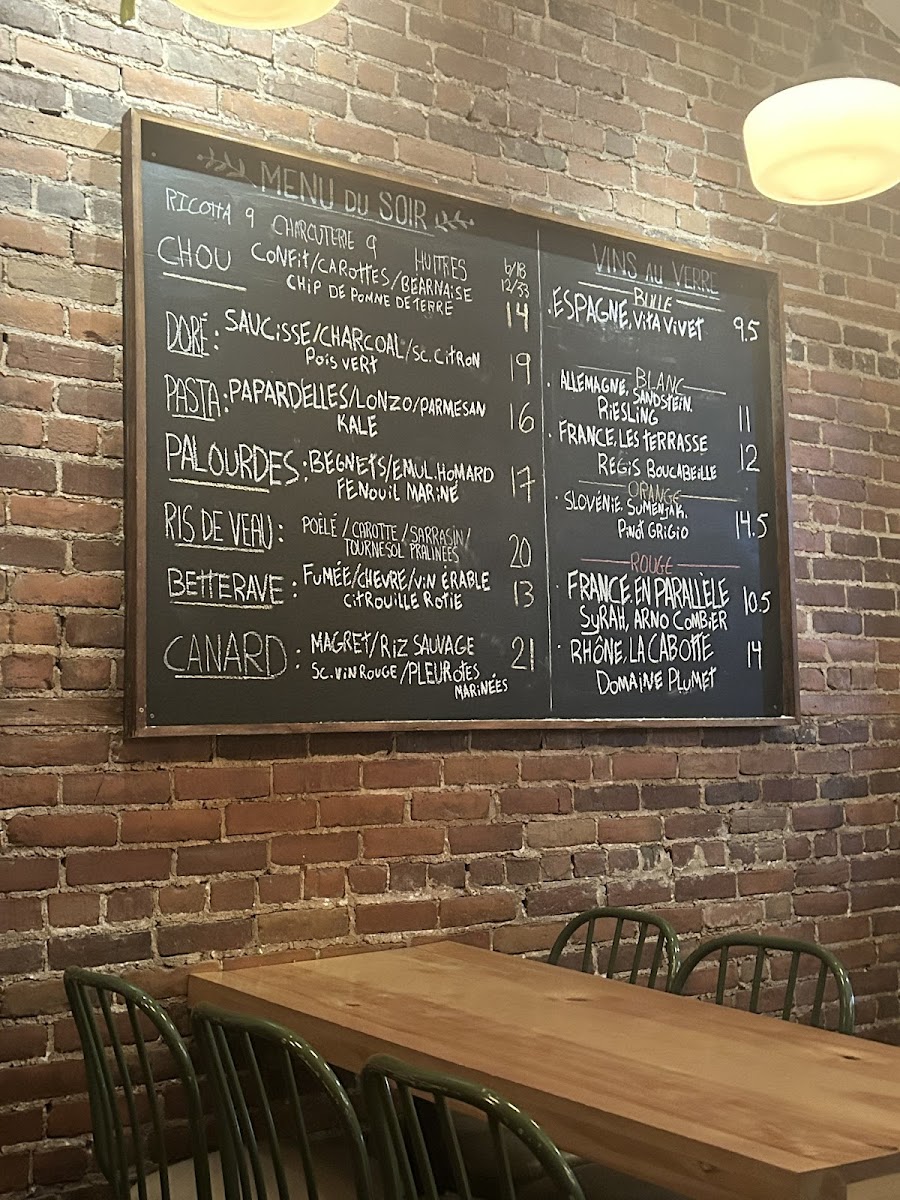 MENU DU SOIR
RICOTTA 9 CHARCUTERIE 9 HUITRES 6/18
12/33
CHOU CONFIT/CAROTTES/BÉARNAISE
CHIP DE POMME DE TERRE 14
DORÉ: SAUCISSE/CHARCOAL/SC. CITRON
POIS VERT 19
PASTA: PAPARDELLES/LONZO/PARMESAN
KALE 16
PALOURDES: BEGNETS/EMUL. HOMARD
FENOUIL MARINÉ 17
RIS DE VEAU: POÊLÉ/CAROTTE/SARRASIN/
TOURNESOL PRALINÉES 20
BETTERAVE: FUMÉE/CHEVRE/VIN ÉRABLE
CITROUILLE ROTIE 13
CANARD: MAGRET/RIZ SAUVAGE
SC. VIN ROUGE/PLEUROTES 21
MARINÉES
VINS AU VERRE
BULLE
. ESPAGNE, VITA VIVET 9.5
BLANC
. ALLEMAGNE, SANDSTEIN.
RIESLING 11
. FRANCE, LES TERRASSE
REGIS BOUCABEILLE 12
ORANGE
. SLOVÉNIE, SUMENJAK.
PINOT GRIGIO 14.5
ROUGE
. FRANCE. EN PARALLÈLE
SYRAH, ARNO COMBIER 10.5
. RHÔNE, LA CABOTTE
DOMAINE PLUMET 14